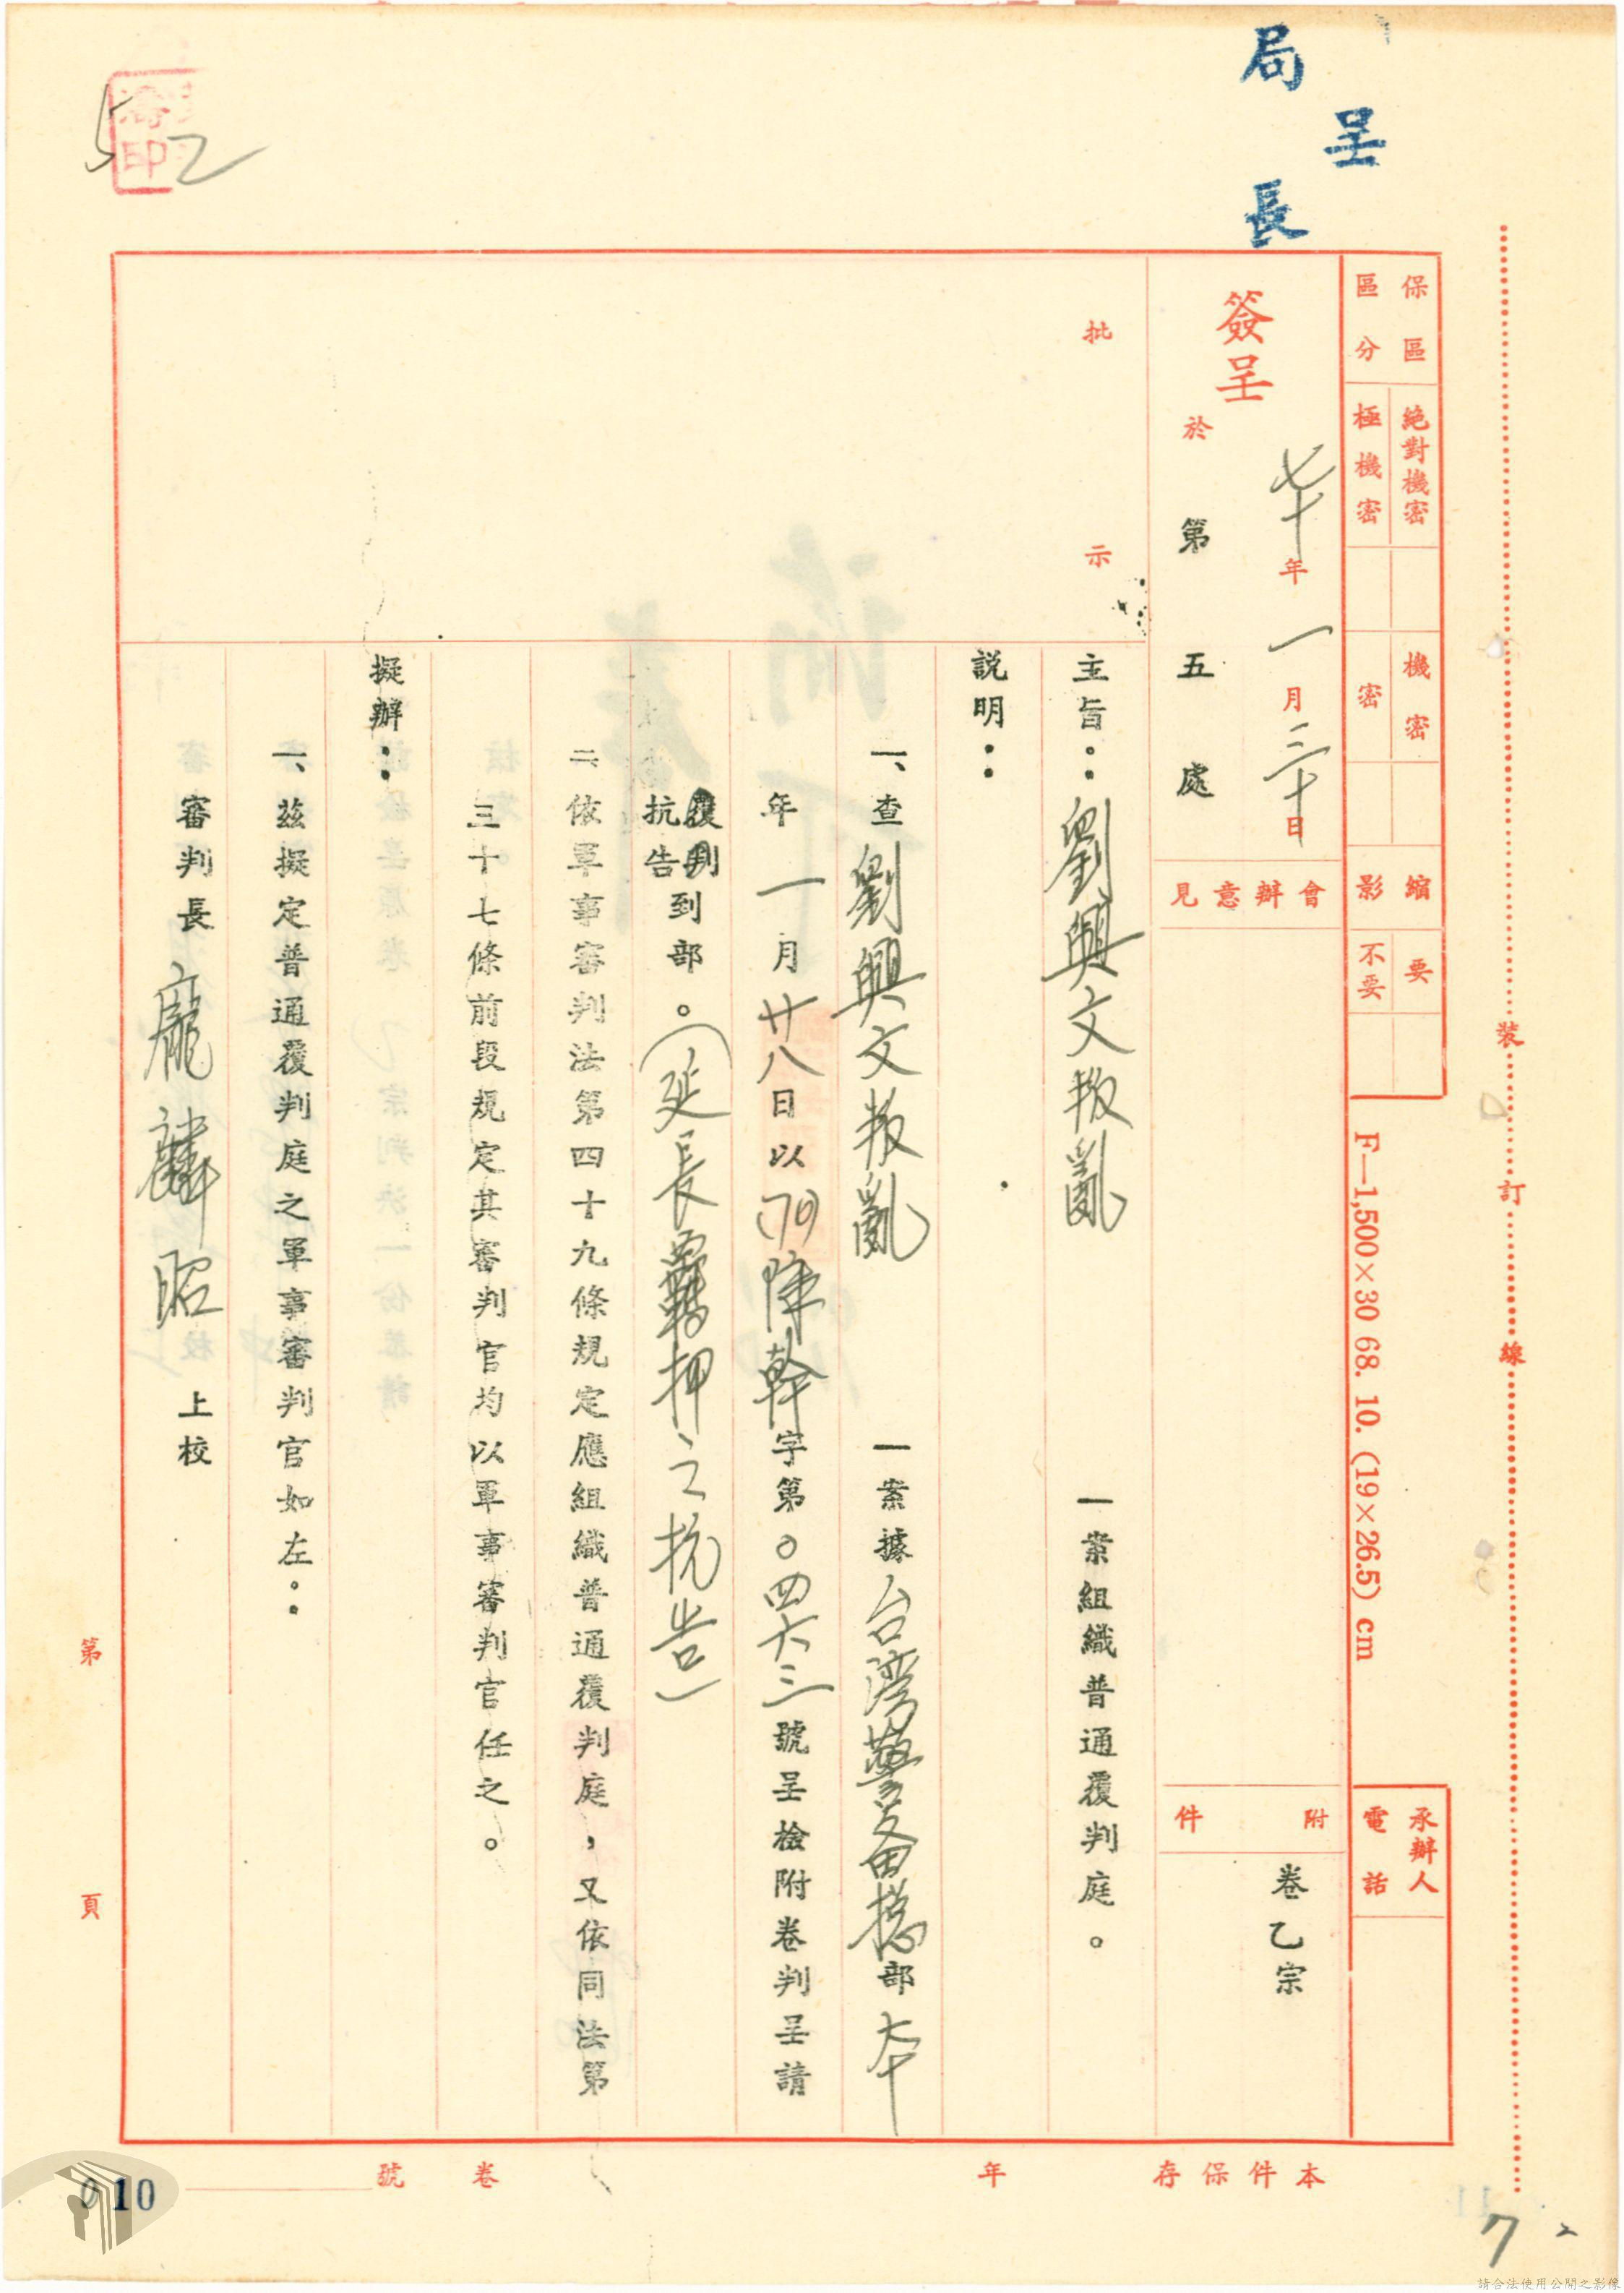 呈
局長
印
52
保區區分
絕對機密
極機密
機密
密
縮影
要
不要
F—1,500×30 68. 10. (19×26.5) cm
承辦人
電話
裝訂線
簽呈
七十年一月三十日
於第五處
會辦意見
附件
卷乙宗
批示
主旨：劉興文叛亂一案組織普通覆判庭。
説明：
一、查劉興文叛亂一案據台灣警备總部本
年一月廿八日以(70)障幹字第〇四六三號呈檢附卷判呈請
覆判
抗告到部。（延長羈押之抗告）
二依軍事審判法第四十九條規定應組織普通覆判庭，又依同法第
三十七條前段規定其審判官均以軍事審判官任之。
擬辦：
一、茲擬定普通覆判庭之軍事審判官如左：
審判長 龐麟昭 上校
第 頁
本件保存 年
卷 號
010
7
請合法使用公開之影像